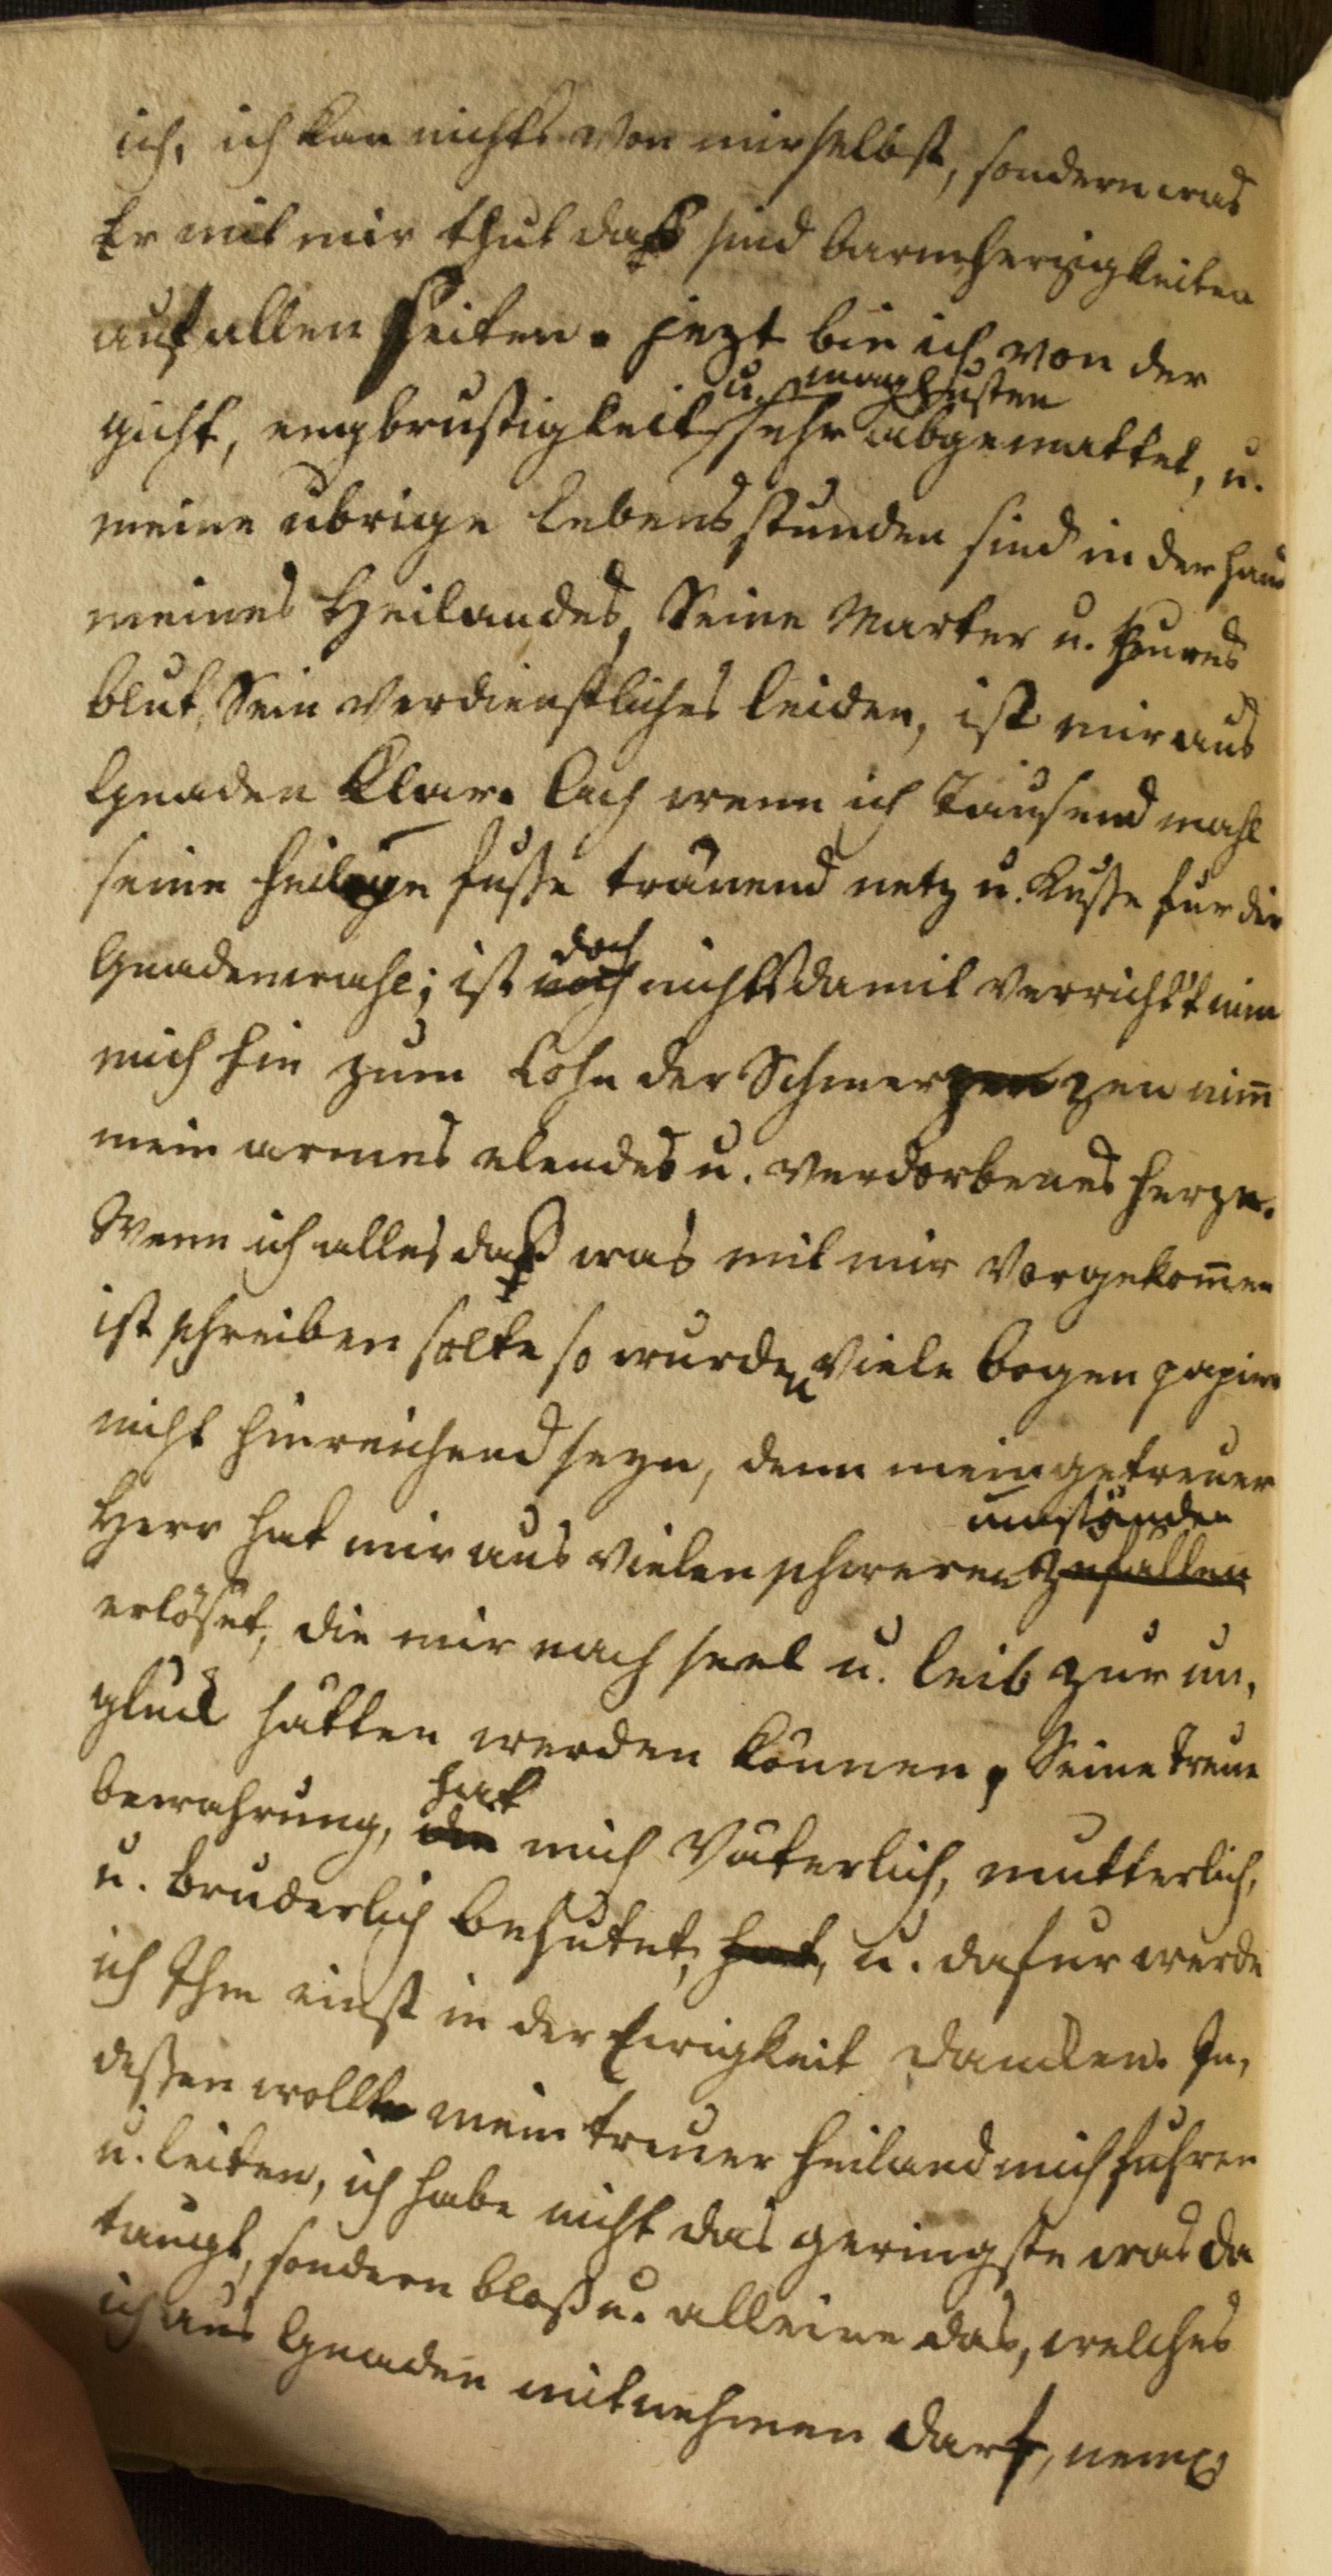 ich, ich kan nichts von mir selbst, sondern was
Er mit mir thut daß sind barmherzigkeiten
auf allen seiten. jezt bin ich von der
u. maghusten
gicht, engbrustigkeit sehr abgemattet, u.
meine ubrige lebens stunden sind in der hand
meines Heilandes, Seine Marter u. theures
blut, Sein verdienstliches leiden, ist mir aus
Gnaden klar. Ach wenn ich Tausend mahl
seine heilige fusse tränend netz u. kusse fur die
doch
Gnadenwahl; ist noch nichts damit verricht't nim
mich hin zum Lohn der Schmerzen zen nim̄
mein armes elendes u. verdorbenes herze.
Wenn ich alles daß was mit mir vorgekom̄en
ist schreiben solte so wurden viele bogen papier
nicht hinreichend seyn, denn mein getreuer
umständen
Herr hat mir aus vielen schweren zufällen
erlöset, die mir nach seel u. leib zur un,
gluck hätten werden können, Seine treue
hat
bewahrung, die mich Väterlich, mutterlich,
u. bruderlich behutet, hat, u. dafur werde
ich Ihm einst in der Ewigkeit dancken. In,
dessen wollte mein treuer heiland mich fuhren
u. leiten, ich habe nicht das geringste was da
taugt, sondern bloß u. alleine das, welches
ich aus Gnaden mitnehmen darf, neml: